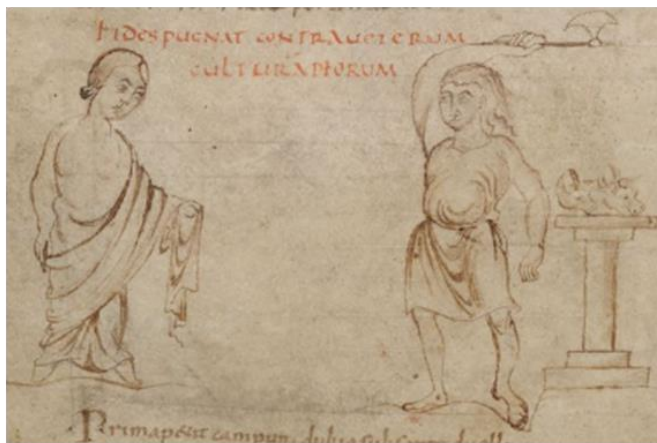 FIDES PUGNAT CONTRA UETERUM
CULTURA DEORUM
Prima petit campum dubia sub sorte duell